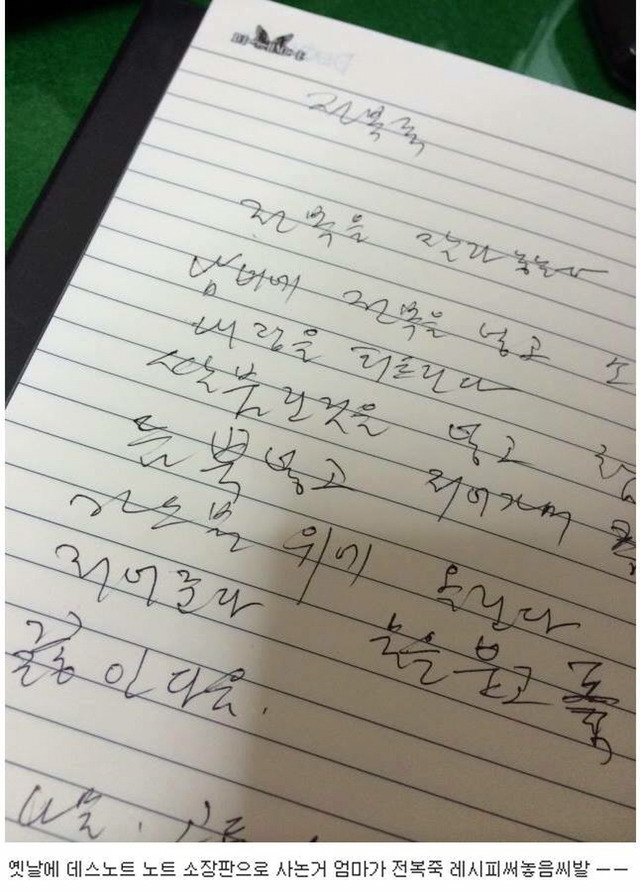 전복죽
전복을 잘라 놓는다
남비에 전복을 넣고
내장을 터트린다
쌀불린것을 넣고
듬뿍넣고 저어가며
가스불 위에 올린다
저어준다 물을 붓고 푹
끓인다음.
옛날에 데스노트 노트 소장판으로 사논거 엄마가 전복죽 레시피써놓음씨발 ㅡㅡ